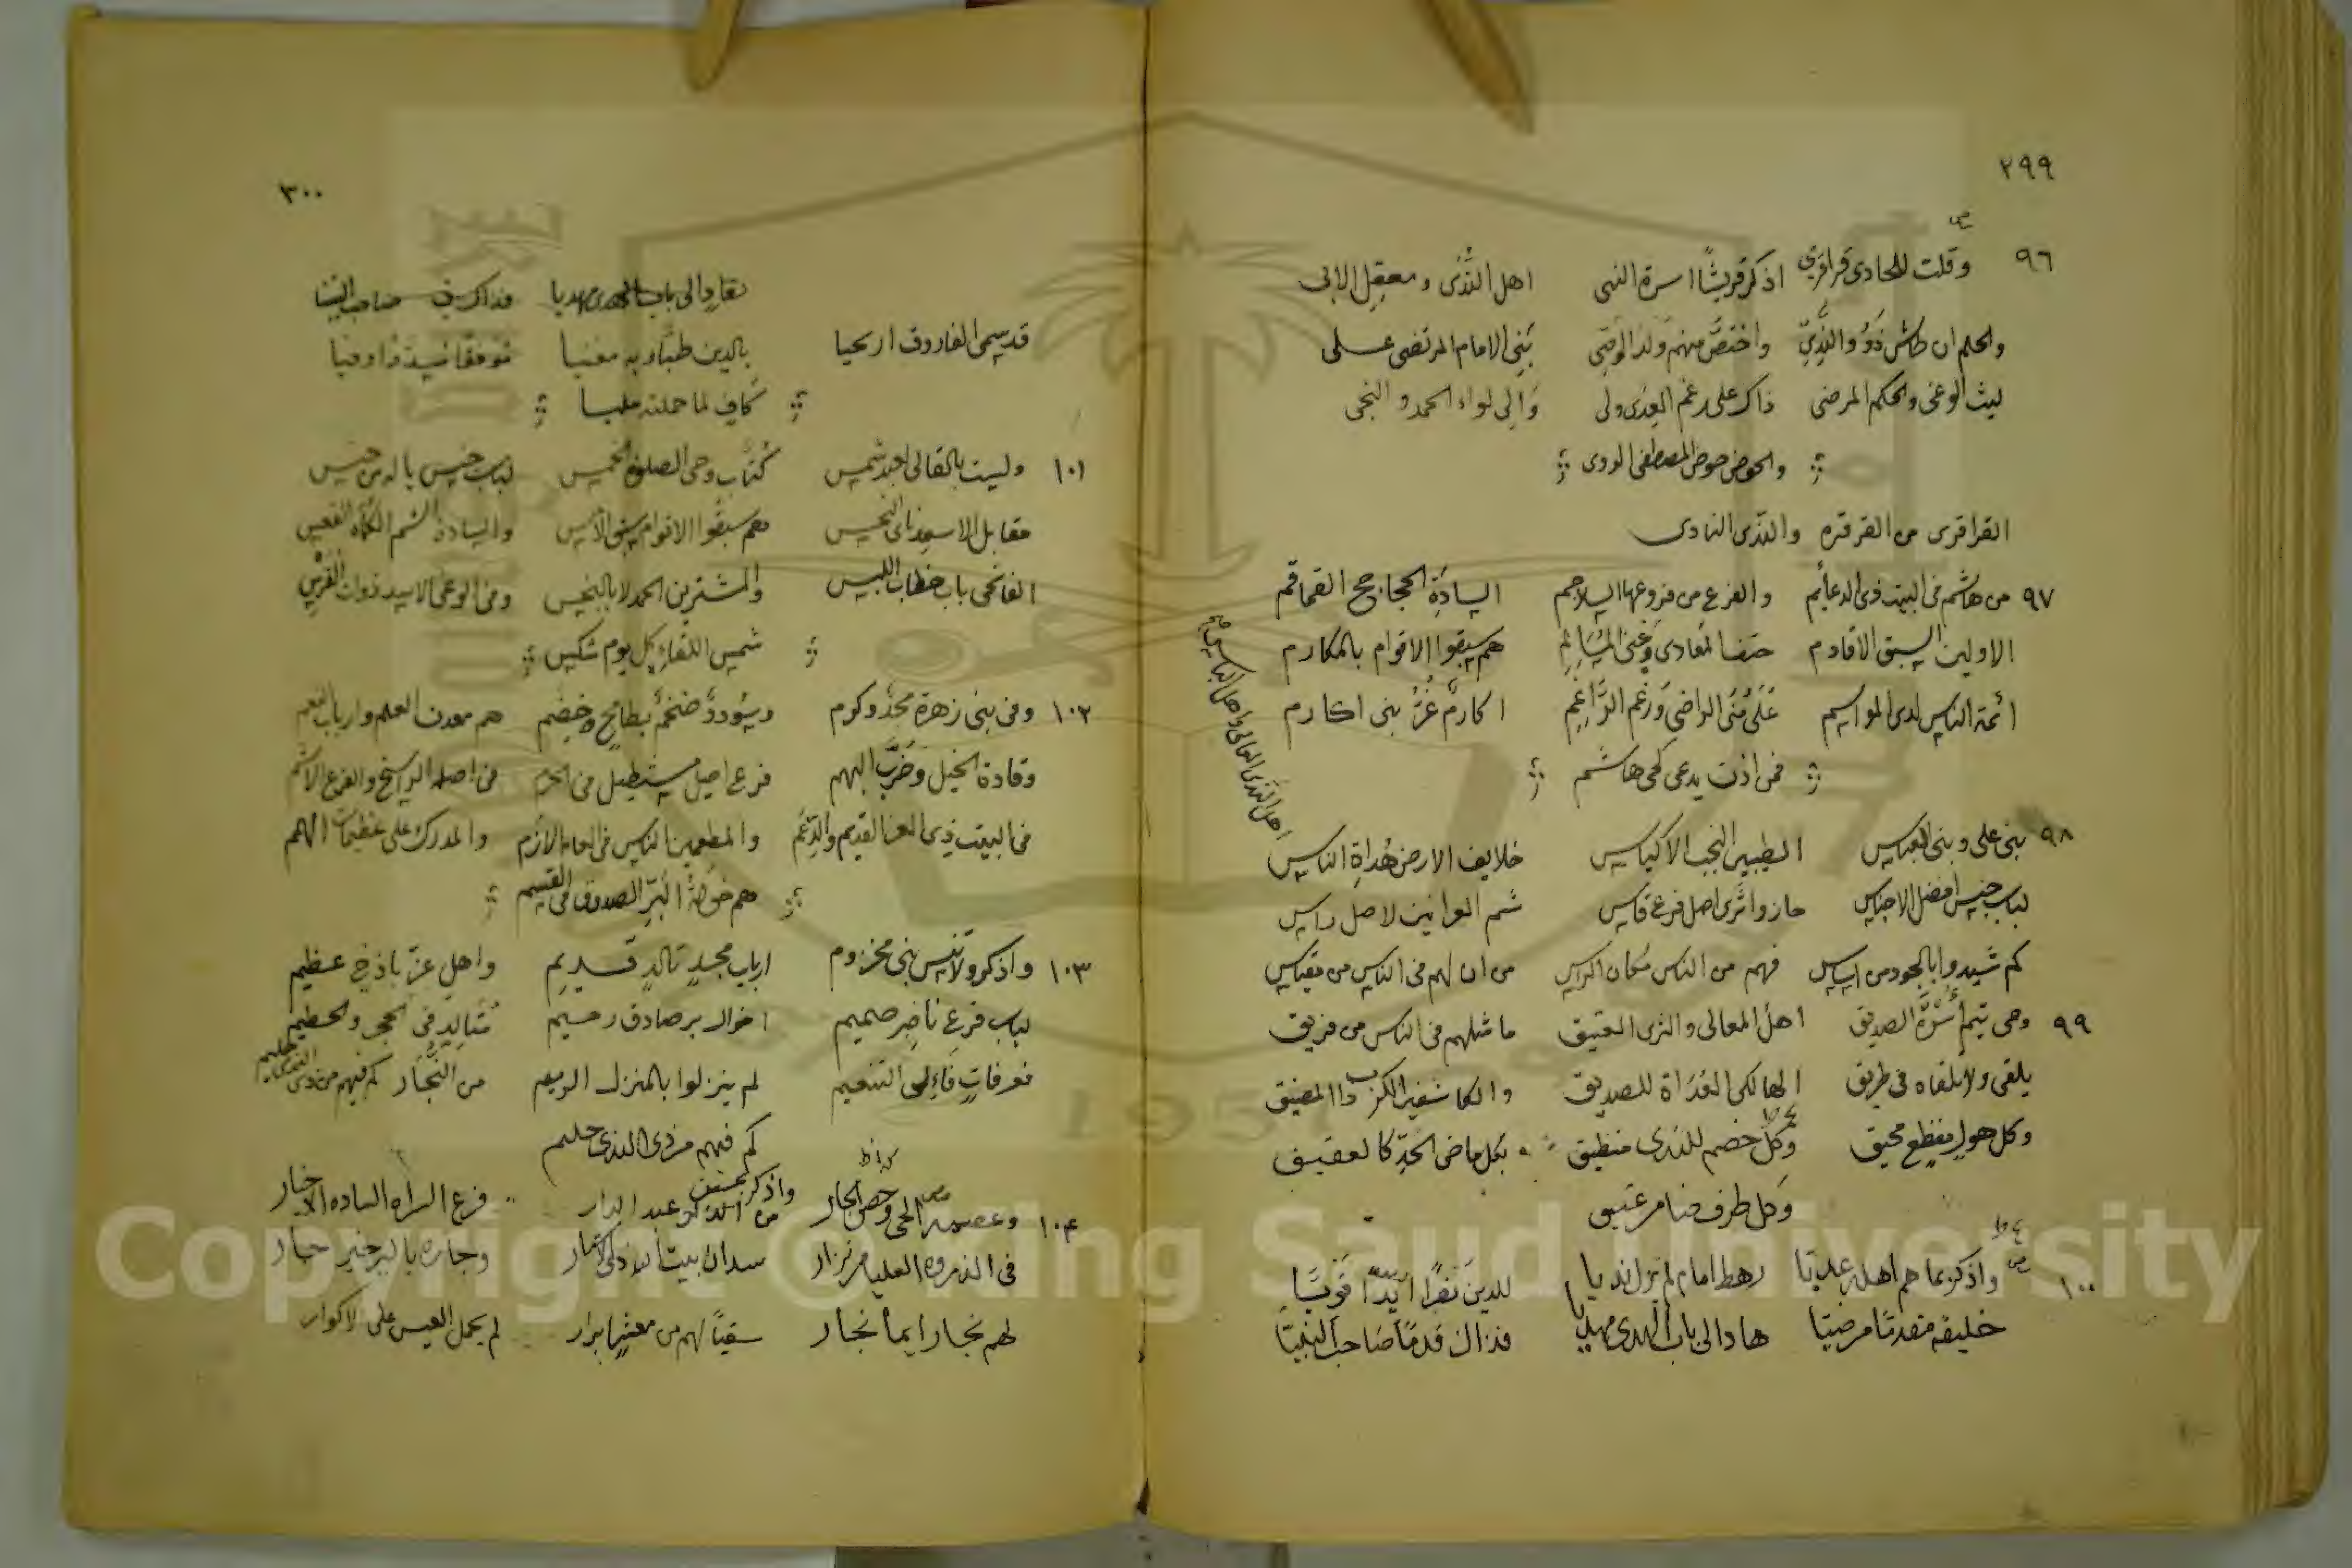 ٢٩٩
ص
٩٦ وقلت للحادى قراقرى اذكر قريشًا اسرة النبى اهل النَّدَى ومعقِل الابى
والحلم ان طاش ذَوُو النَّدِىِّ واختصَّ منهم ولدَ الوصِّى بَنِى الامام المرتضى عـلـى
ليث الوغى والحكم المرضى ذاك على رغم العِدَى ولى وَالِى لواء الحمد و النجى
والحوض حوض المصطفى الروى
القراقرى من القرقره والنَّدى النادى
٩٧ من هاشم فى البيت ذى الدعائم والفرع من فروعها السلاجم السادَةِ الحجاجح القماقم
الاولين السبق الاقادم حتف المعادى وغِنى المُسَالِمِ هم سبقوا الاقوام بالمكارم
ائمة الناس لدى المواسم عَلَى مُنَى الراضى وَرَغم الرَّاغِمِ اكارمٌ غُرٌّ بنى اكارم
فمن اذن يدعى كحى هاشم
اهل الندى المعالى واهل الباس ص
٩٨ بنى على وبنى العباس الطيبين النجب الاكياس خلايف الارض هُداةِ الناس
لباب جنس افضل الاجناس حازوا ثَرَى اصل فرع قاس شم العرانين لاصل راس
كم شيدوا بالجود من اساس فهم من الناس مَكان الراس من ان لهم فى الناس من مقياس
٩٩ وحى تيم اُسْرَةَ الصديق اهل المعالى والثرى العتيق ما مثلهم فى الناس من فريق
يلقى ولا تلقاه فى طريق الهالكى العُدَاة للصديق والكاشفين الكرب ذا المضيق
وكل هول مفظع محيق وكلّ خضم للندى منطيق بكل ماضى الحدِّ كالعقيق
وكل طرف ضامر عتيق
١٠٠ ص واذكر بما هم اهله عديّا رهط امام لم يزل نديا للدين نَفَرًا اَيِّدًا قَوِيّا
خليفة مقدمًا مرضيّا هاد الى باب الهدى مهديا فذاك قدمًا صَاحب النبيّا
٣٠٠
هاد الى باب الهدى مهديا فذاك صاحب النبيا
قد سمى الفاروق اريحيا بالدين طبًّا وبه معنيا موفقا وفيا
كافٍ لما حملته مليا
١٠١ وليست بالقالى عبد شمس كُتَّاب وحى الصلوة الخمس لباب جنس ياله من جنس
مقابل الاسعد ناى النحس هم سبقوا الاقوام سبق الامس والسادة الشم الكماة القعس
الفاتحى باب خطاب اللبس والمشترين الحمد لا بالبخس وفى الوغى الاسد ذوات الفَرْسِ
شمس اللقاءِ كل يوم شكس
١٠٢ وفى بنى زهرة مجدٌ وكرم وسُوددٌ ضخمٌ بطامحٍ خِضَم هم معدن العلم وارباب النعم
وقادة الخيل وضَرَّب البهم فرع اصيل مستطيل فى الحرم فى اصله الراسخ والفرع الاشم
فى البيت ذى العز القديم والدِّعَم والمطعمين الناس فى العام الازَم والمدرك على عظيمات الهمم
هم خوُلةُ البَرِّ الصدوق فى القسم
١٠٣ واذكر ولا تنس بنى مخزوم ارباب مجدٍ تالدٍ قـديمِ واهل عزّ باذخ عظيم
لباب فرع ناضِر صميم اخوال بر صادق رحيم مُتَالِدٍ فى الحجر والحطيم
فعرفاتٍ فَاءِلى التنعيم لم ينزلوا بالمنزل الريم من النُّجَّار كم فيهم من ذى الندى حليم
كم فيهم من ذى الندى حليم
١٠٤ وعصمة الحى وحصن الجار واذكر عبد الدار فرع السراه الساده الاخيار
فى الذروه العليا من نزار سدان بيت الله ذى وجاره بالبر خير جار
لهم نجار ايما نجار سقيًا لهم من معشرٍ ابرار لم يحمل العيس على الاكوار
Copyright © King Saud University
1957